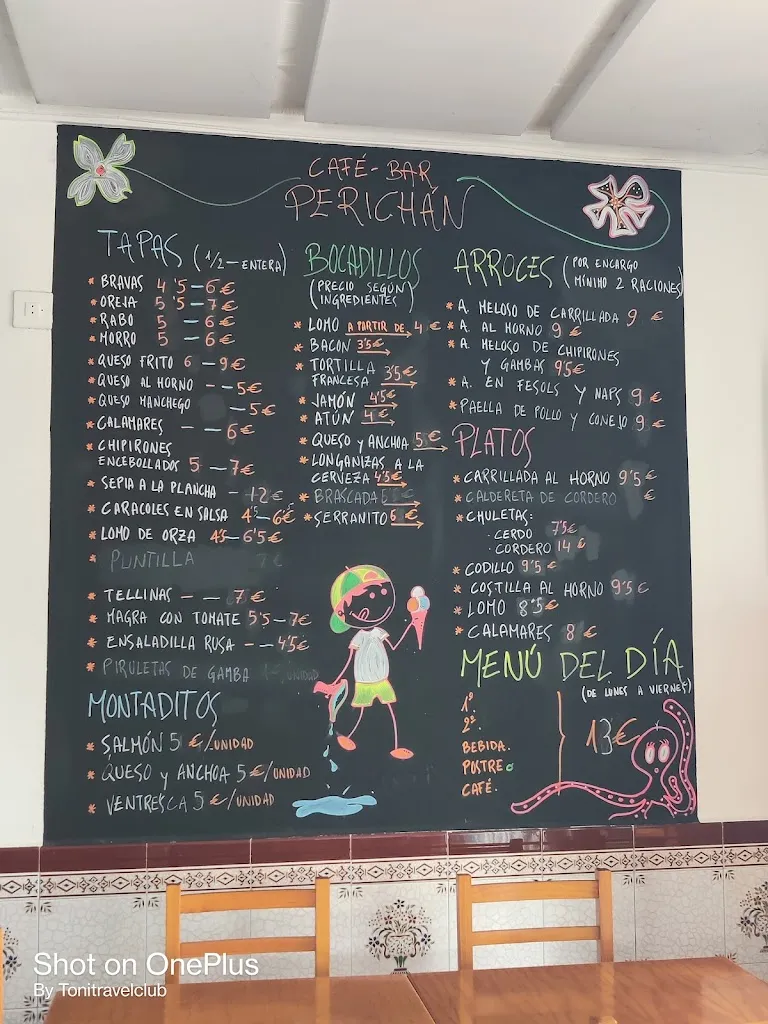 CAFÉ-BAR
PERICHÁN
TAPAS (1/2-ENTERA)
* BRAVAS 4'5-6€
* OREJA 5'5-7€
* RABO 5-6€
* MORRO 5-6€
* QUESO FRITO 6-9€
* QUESO AL HORNO --5€
* QUESO MANCHEGO -5€
* CALAMARES --6€
* CHIPIRONES
ENCEBOLLADOS 5-7€
* SEPIA A LA PLANCHA -12€
* CARACOLES EN SALSA 4'5-6'5€
* LOMO DE ORZA 4'5-6'5€
* PUNTILLA 7€
* TELLINAS -- 7€
* MAGRA CON TOMATE 5'5-7€
* ENSALADILLA RUSA --4'5€
* PIRULETAS DE GAMBA €/UNIDAD
MONTADITOS
* SALMÓN 5€/UNIDAD
* QUESO y ANCHOA 5€/UNIDAD
* VENTRESCA 5€/UNIDAD
BOCADILLOS
(PRECIO SEGÚN
INGREDIENTES)
* LOMO A PARTIR DE 4€
* BACON 3'5€
* TORTILLA
FRANCESA 3'5€
* JAMÓN 4'5€
* ATÚN 4€
* QUESO y ANCHOA 5€
* LONGANIZAS A LA
CERVEZA 4'5€
* BRASCADA 5€
* SERRANITO 6€
ARROCES (POR ENCARGO
MÍNIMO 2 RACIONES)
* A. MELOSO DE CARRILLADA 9€
* A. AL HORNO 9€
* A. MELOSO DE CHIPIRONES
Y GAMBAS 9'5€
* A. EN FESOLS Y NAPS 9€
* PAELLA DE POLLO Y CONEJO 9€
PLATOS
* CARRILLADA AL HORNO 9'5€
* CALDERETA DE CORDERO €
* CHULETAS:
· CERDO 7'5€
· CORDERO 14€
* CODILLO 9'5€
* COSTILLA AL HORNO 9'5€
* LOMO 8'5€
* CALAMARES 8€
MENÚ DEL DÍA
(DE LUNES A VIERNES)
1º.
2º.
BEBIDA.
POSTRE o
CAFÉ.
13€
Shot on OnePlus
By Tonitravelclub